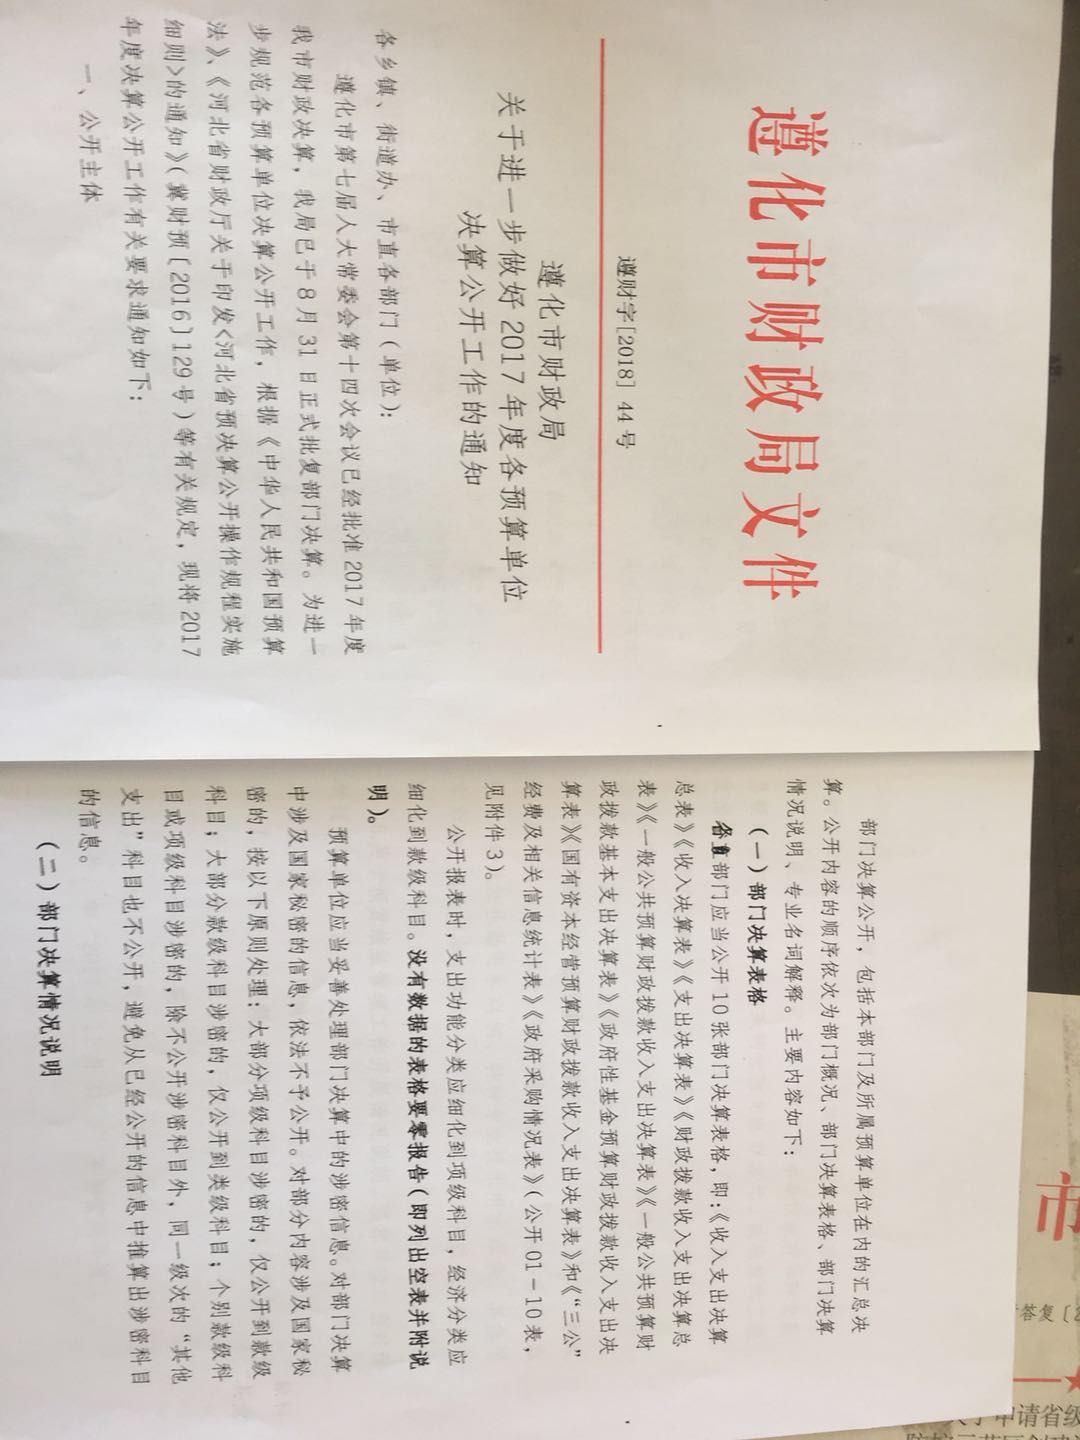 遵化市财政局文件
遵财字[2018] 44号
遵化市财政局
关于进一步做好2017年度各预算单位
决算公开工作的通知
各乡镇、街道办、市直各部门(单位):
遵化市第七届人大常委会第十四次会议已经批准2017年度
我市财政决算，我局已于8月31日正式批复部门决算。为进一
步规范各预算单位决算公开工作，根据《中华人民共和国预算
法》、《河北省财政厅关于印发<河北省预决算公开操作规程实施
细则>的通知》(冀财预[2016]129号)等有关规定，现将2017
年度决算公开工作有关要求通知如下:
一、公开主体
部门决算公开，包括本部门及所属预算单位在内的汇总决
算。公开内容的顺序依次为部门概况、部门决算表格、部门决算
情况说明、专业名词解释。主要内容如下:
(一)部门决算表格
部门应当公开10张部门决算表格，即:《收入支出决算
总表》《收入决算表》《支出决算表》《财政拨款收入支出决算总
表》《一般公共预算财政拨款收入支出决算表》《一般公共预算财
政拨款基本支出决算表》《政府性基金预算财政拨款收入支出决
算表》《国有资本经营预算财政拨款收入支出决算表》和《“三公”
经费及相关信息统计表》《政府采购情况表》(公开01-10表，
见附件3)。
公开报表时，支出功能分类应细化到项级科目，经济分类应
细化到款级科目。没有数据的表格要零报告(即列出空表并附说
明)。
预算单位应当妥善处理部门决算中的涉密信息。对部门决算
中涉及国家秘密的信息，依法不予公开。对部分内容涉及国家秘
密的，按以下原则处理:大部分项级科目涉密的，仅公开到款级
科目;大部分款级科目涉密的，仅公开到类级科目;个别款级科
目或项级科目涉密的，除不公开涉密科目外，同一级次的“其他
支出”科目也不公开，避免从已经公开的信息中推算出涉密科目
的信息。
(二)部门决算情况说明
市
复〔2
申请省级